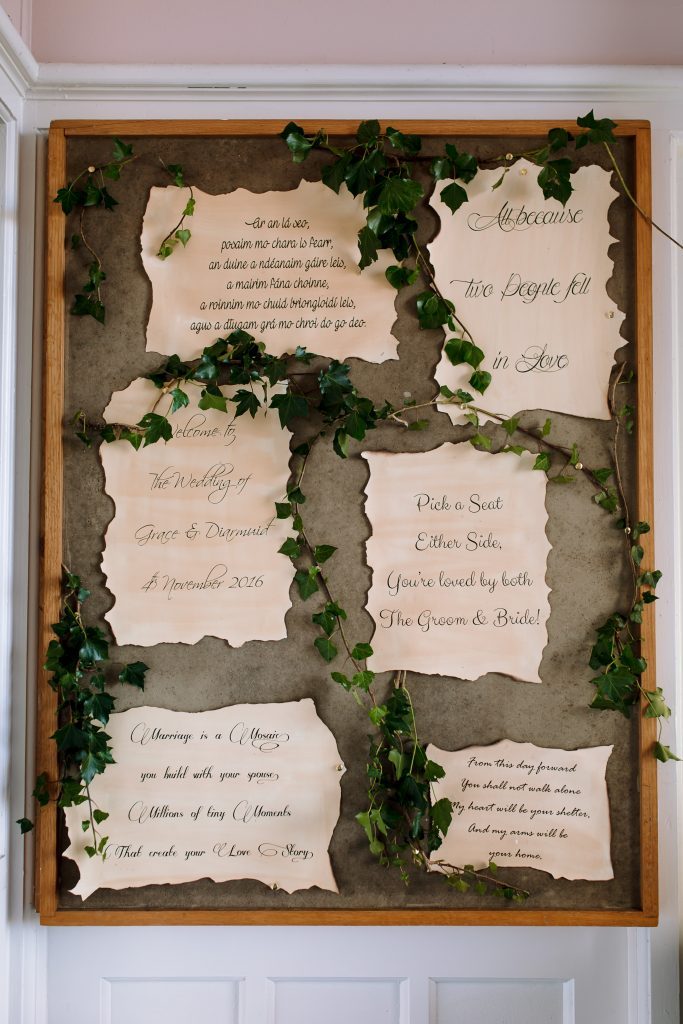 Ar an lá seo,
posaim mo chara is fearr,
an duine a ndéanaim gáire leis,
a mairim fána choinne,
a roinnim mo chuid brionglóidí leis,
agus a dtugam grá mo chroí do go deo.
All because
two People fell
in Love
Welcome to
The Wedding of
Grace & Diarmuid
4th November 2016
Pick a Seat
Either Side,
You're loved by both
The Groom & Bride!
Marriage is a Mosaic
you build with your spouse
Millions of tiny Moments
That create your Love Story
From this day forward
You shall not walk alone
My heart will be your shelter,
And my arms will be
your home.